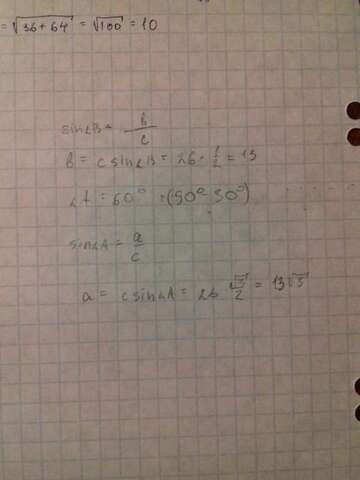 = √(36+64) = √100 = 10
sin∠B = b/c
b = c sin∠B = 26 · 1/2 = 13
∠A = 60° (90° 30°)
sin∠A = a/c
a = c sin∠A = 26 √3/2 = 13√3